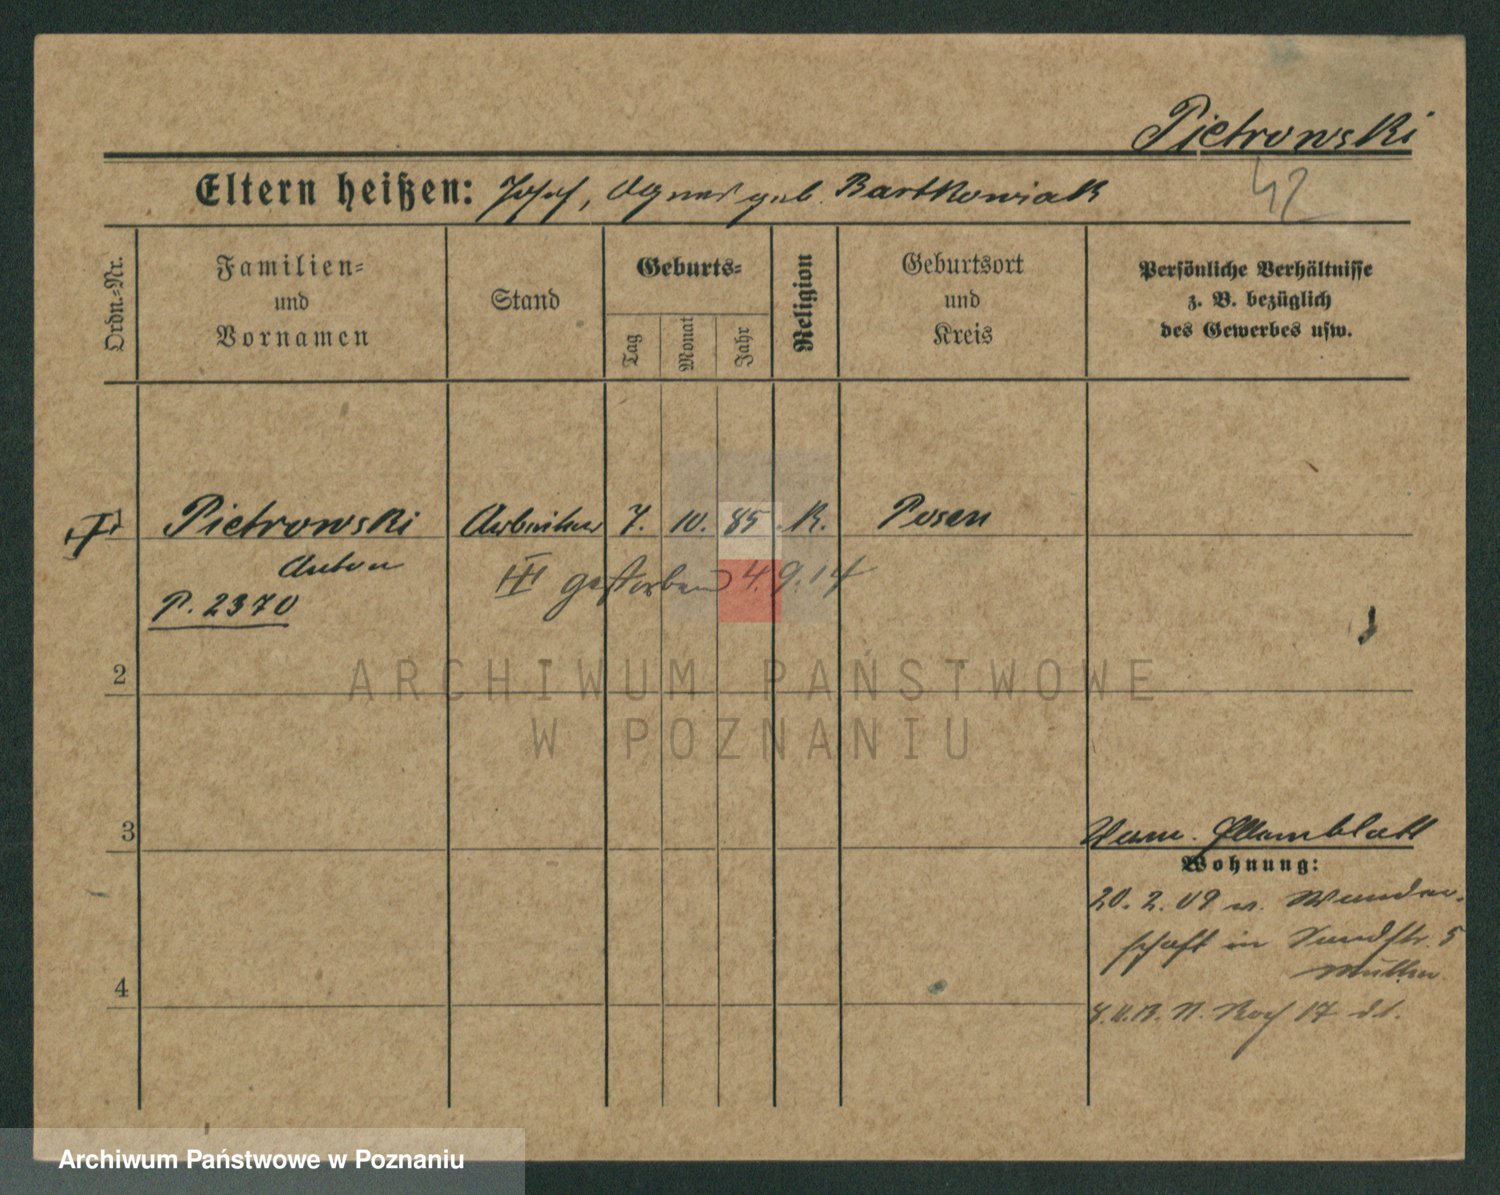 Pietrowski
Eltern heißen: Josef, Agnes geb. Bartkowiak
42
Ordn.-Nr.
Familien-
und
Vornamen
Stand
Geburts-
Tag
Monat
Jahr
Religion
Geburtsort
und
Kreis
Persönliche Verhältnisse
z. B. bezüglich
des Gewerbes usw.
Pietrowski Arbeiter 7. 10. 85 K. Posen
Anton
III gestorben 4.9.14
P. 2370
2
ARCHIWUM PAŃSTWOWE
W POZNANIU
3
Stammblatt
Wohnung:
20. 2. 09 v. Wander-
schaft in Sandstr. 5
Mutter
4
17
Archiwum Państwowe w Poznaniu